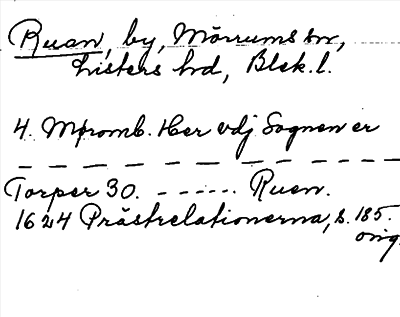 Ruan, by, Mörrums sn,
Listers hd, Blek. l.
4. Møromb. Her vdj Sognen er
Torper 30. ------ Ruen.
1624 Prästrelationerna, s. 185.
orig.